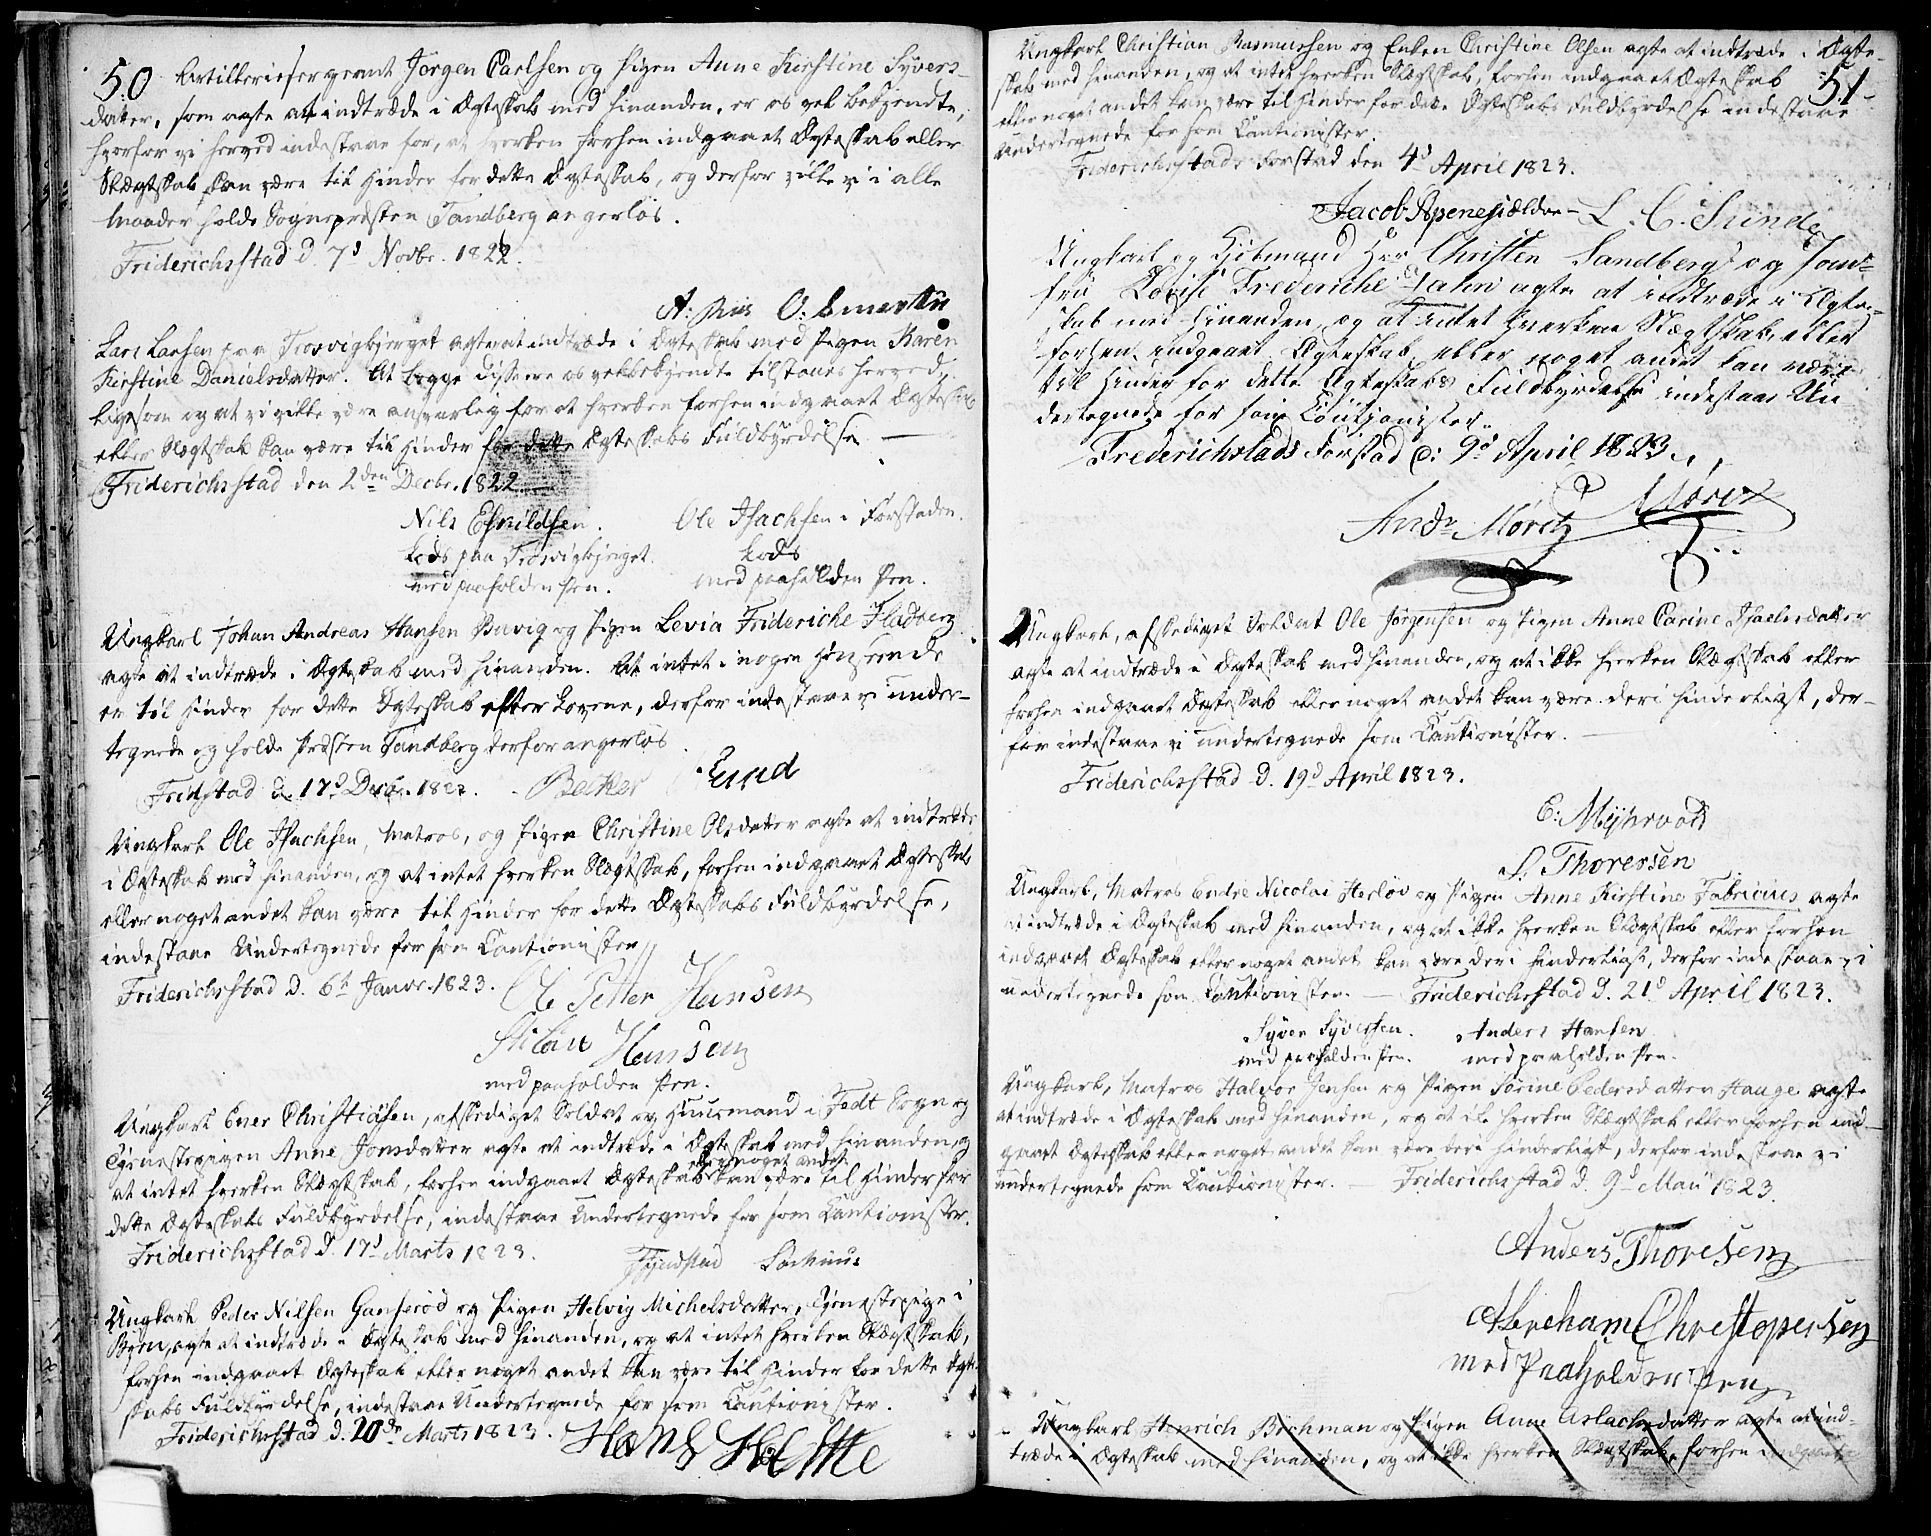 50 Artilleriesergeant Jörgen Carlsen og Pigen Anne Kirstine Syvers-
datter, som agte at indtræde i Ægteskab med hinanden, er os vel bekjendte,
hvorfor vi herved indestaae for, at hverken forhen indgaaet Ægteskab eller
Slægtskab kan være til Hinder for dette Ægteskab, og derfor ville vi i alle
Maader holde Sognepresten Tandberg angerløs.
Friderichsstad d. 7d Novbr. 1822.
Lars Larsen paa Trosvigbjerget agter at indtræde i Ægteskab med Pigen Karen
Kirstine Danielsdatter. At begge disse ere os velbekjendte tilstaaes herved,
ligesom og at vi ville være ansvarlig for at hverken forhen indgaaet Ægteskab
eller Slægtskab kan være til Hinder for dette Ægteskabs Fuldbyrdelse. —
Friderichsstad den 2den Decbr. 1822. —
Nils Eskildsen. Ole Isachsen i Forstaden.
Lods paa Trosvigbjerget. Lods
med paaholden Pen. med paaholden Pen.
Ungkarl Johan Andreas Hansen Buvig og Pigen Levia Frideriche Fladberg
agte at indtræde i Ægteskab med hinanden. At intet i nogen Henseende
er til Hinder for dette Ægteskab efter Lovene, derfor indestaae vi under-
tegnede og holde Presten Tandberg derfor angerløs.
Fridstad d. 17d Decbr. 1822. Becker Lund
Ungkarl Ole Isachsen, Matros, og Pigen Christine Olsdatter agte at indtræde
i Ægteskab med hinanden, og at intet hverken Slægtskab, forhen indgaaet Ægteskab
eller noget andet kan være til Hinder for dette Ægteskabs Fuldbyrdelse,
indestaae Undertegnede for som Cautionister.
Friderichsstad d. 6t Janvr. 1823. Ole Petter Hansen
Hansen
med paaholden Pen.
Ungkarl Ener Christiasen, afskediget Soldat og Huusmand i Tedt Sogn og
Tjenestepigen Anne Jonsdatter agte at indtræde i Ægteskab med hinanden, og
eller noget andet
at intet hverken Slægtskab, forhen indgaaet Ægteskab kan være til Hinder for
dette Ægteskabs Fuldbyrdelse, indestaae Undertegnede for som Cautionister.
Friderichsstad d. 17d Marts 1823.
Ungkarl Peder Nilsen Ganserød og Pigen Helvig Michelsdatter, Tjenestepige i
Byen, agte at indtræde i Ægteskab med hinanden, og at intet hverken Slægtskab,
forhen indgaaet Ægteskab eller noget andet kan være til Hinder for dette Ægte-
skabs Fuldbyrdelse, indestaae Undertegnede for som Cautionister.
Friderichsstad d. 20de Marts 1823. Hans
51
Ungkarl Christian Rasmussen og Enken Christine Olsen agte at indtræde i Ægte-
skab med hinanden, og at intet hverken Slægtskab, forhen indgaaet Ægteskab
eller noget andet kan være til Hinder for dette Ægteskabs Fuldbyrdelse indestaae
Undertegnede for som Cautionister.
Friderichsstads Forstad den 4d April 1823.
Jacob Apenesjældre — L. C. Sunde
Ungkarl og Kjøbmand Herr Christen Sandberg og Jom-
fru Lovise Frederiche agte at indtræde i Ægte-
skab med Hinanden, og at intet hverken Slægtskab, eller
forhen indgaaet Ægteskab, eller noget andet kan være
til Hinder for dette Ægteskabs Fuldbyrdelse indestaar Un-
dertegnede for som Cautjonister.
Frederichstads Forstad d: 9d April 1823.
Andr Moretz Moretz
Ungkarl, afskediget Soldat Ole Jörgensen og Pigen Anne Carine Isaelsdatter
agte at indtræde i Ægteskab med hinanden, og at ikke hverken Slægtskab eller
forhen indgaaet Ægteskab eller noget andet kan være deri hinderligt, der-
for indestaae vi undertegnede som Cautionister. —
Friderichsstad d. 19d April 1823.
C: Mijhrvold
S. Thoressen
Ungkarl, Matros Endre Nicolai Herløv og Pigen Anne Kirstine Fabricius agte
at indtræde i Ægteskab med hinanden, og at ikke hverken Slægtskab eller forhen
indgaaet Ægteskab eller noget andet kan være deri hinderligt, derfor indestaae vi
undertegnede som Cautionister. — Friderichsstad d. 21d April 1823.
Syver Syversen. Anders Hansen
med paaholden Pen. med paaholden Pen.
Ungkarl, Matros Halvor Jensen og Pigen Sörine Pedersdatter Hauge agte
at indtræde i Ægteskab med hinanden, og at ikke hverken Slægtskab eller forhen ind-
gaaet Ægteskab eller noget andet kan være deri hinderligt, derfor indestaae vi
undertegnede som Cautionister. — Friderichsstad d. 9d Maii 1823.
Anders Thoresen
Abreham Christopersen
med Paaholden Pen
Ungkarl Henrich Bochman og Pigen Anne Aslachsdatter agte at ind-
træde i Ægteskab med hinanden, og at ikke hverken Slægtskab, forhen indgaaet